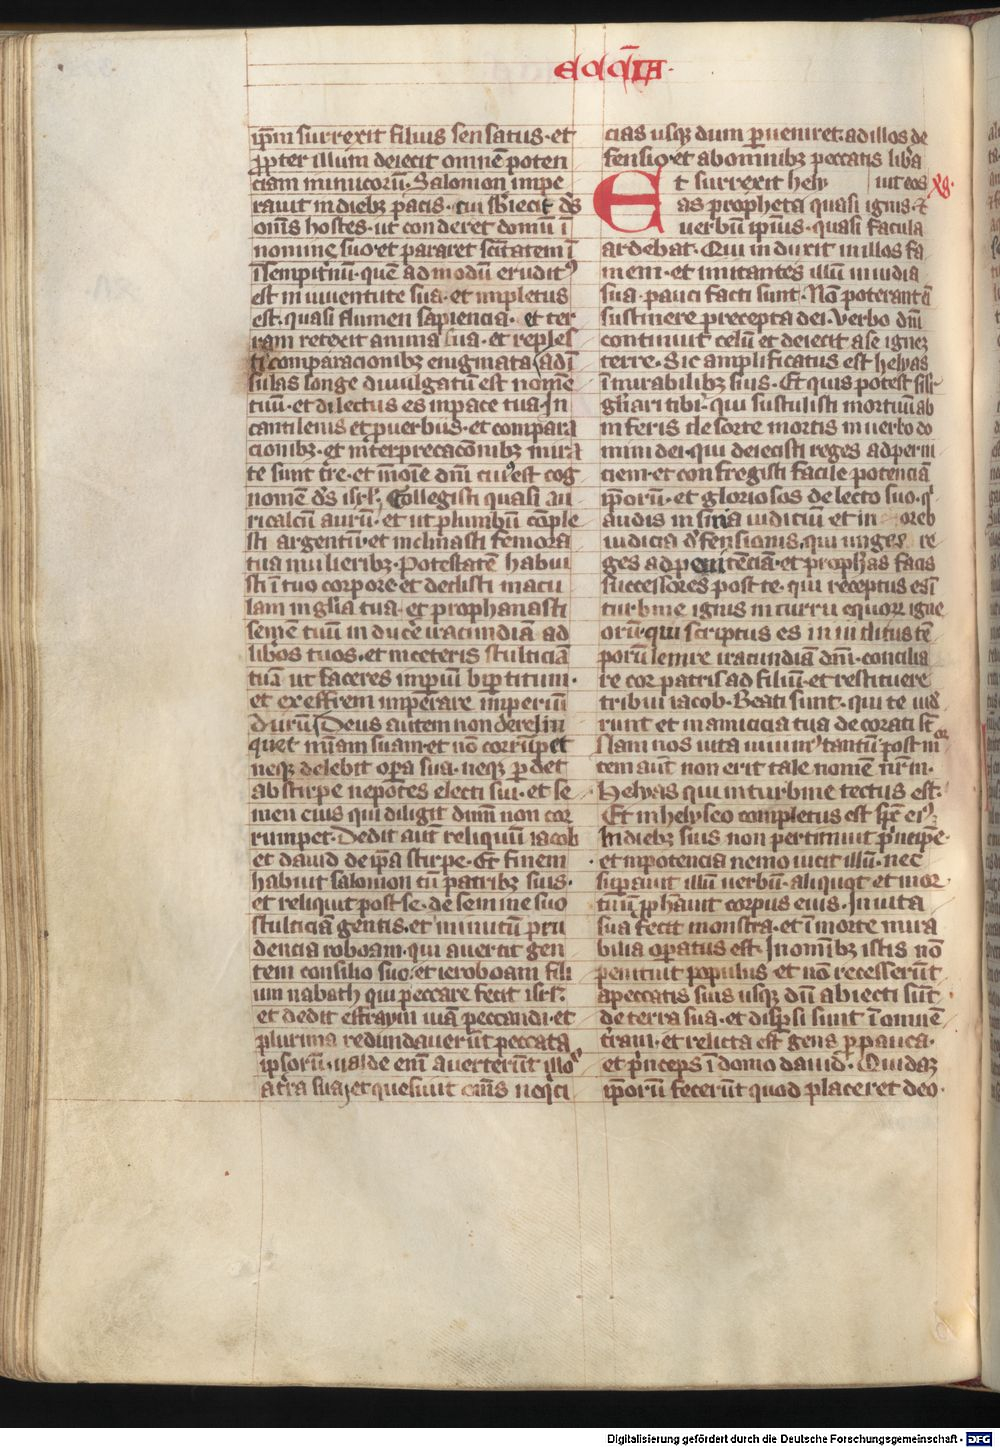 eccīa
ip̄m surrexit filius sensatus· et
ꝓpter illum deiecit omnē poten
ciam inimicorū· Salomon impe
rauit in diebꝫ pacis· cui sb̄iecit dſ̄
om̄s hostes· ut conderet domū ī
nomine suo· et pararet sc̄itatem ī
ī sempit̄nū· quē ad modū eruditꝰ
est in iuuentute sua· et impletus
est· quasi flumen sapiencia· et ter
ram retexit anima sua· et reples
ti comparacionibꝫ enigmata ad ī
sulas longe diuulgatū est nomē
tuū· et dilectus es in pace tua· In
cantilenis et ꝓuerbiis· et compara
cionibꝫ· et interpretacōnibꝫ mira
te sunt tr̄e· et in noīe dn̄i cui est cog
nomē dſ̄ isrl̄· Collegisti quasi au
ricalcū aurū· et ut plumbū cōple
sti argentū· et inclinasti femora
tua mulieribꝫ· Potestatē habui
sti ī tuo corpore· et dedisti macu
lam in gl̄ia tua· et prophanasti
semē tuū inducē̄ iracundiā ad
lib̄os tuos· et in ceteris stulticiā
tuā ut faceres imꝑiū biꝑtitum·
et ex effrem imperare imperiū
durū Deus autem non derelin
quet mīam suam et nō corrūpet
neqꝫ delebit oꝑa sua· neqꝫ ꝑdet
ab stirpe nepotes electi sui· et se
men eius qui diligit dn̄m non cor
rumpet· Dedit aut̄ reliquū iacob
et dauid de ip̄a stirpe· Et finem
habuit salomon cū patribꝫ suis·
et reliquit post se· de semine suo
stulticiā gentis· et īminutū pru
dencia roboam· qui auertit gen
tem consilio suo· et ieroboam fili
um nabath qui peccare fecit isrl̄·
et dedit effraym uiā peccandi· et
plurima redundauer̄ūt peccata
ipsorū· ualde enī auerterūt illoꝰ
a tr̄a sua et quesiuit om̄s neq̄ci
cias usqꝫ dum ꝑueniret· ad illos de
fensio· et ab omnibꝫ peccatis libāꝫ
Et surrexit hely uit eos xlꝫ·
as propheta quasi ignis· et
uerbū ipius· quasi facula
ardebat· Qui induxit in illos fa
mem· et imitantes illū inuidia
sua· pauci facti sunt· Nō poterant ī
sustinere precepta dei· Verbo dn̄i
continuit celū· et deiecit a se ignē
terre· Sic amplificatus est helyas
ī mirabilibꝫ suis· Et quis potest sili
gl̄iari tibi· qui sustulisti mortuū ab
inferis de sorte mortis in uerbo do
mini dei· qui deiecisti reges ad perni
ciem· et confregisti facile potenciā
ip̄orū· et gloriosos de lecto suo· q̄
audis in sina iudiciū et in oreb
iudicia defensionis· qui unges re
ges ad penitēciā· et proph̄as facis
successores post te· qui receptus es ī
turbine ignis in curru equoꝝ igne
orū· qui scriptus es in iudiciis tē
porū lenire iracundiā dn̄i· concilia
re cor patris ad filiū· et restituere
tribu iacob· Beati sunt· qui te uid̄
runt et in amicicia tua decorati st̄
Nam nos uita uiuimꝰ tantū· post mor
tem aut̄ non erit tale nomē nr̄m·
Helyas qui in turbine tectus est·
Et in helyseo completus est sp̄c eiꝰ·
In diebꝫ suis non pertimuit principē·
et in potencia nemo uicit illū· nec
suꝑauit illū uerbū· aliquot et mor
tuū ꝓph̄auit corpus eius· In uita
sua fecit monstra· et ī morte mira
bilia oꝑatus est· In om̄ibꝫ istis nō
penituit populus et nō recesserūt
a peccatis suis usqꝫ dū abiecti sūt
de terra sua· et disꝑsi sunt ī omnē
tr̄am· et relicta est gens ꝑpauca·
et prīceps ī domo dauid· Quidaꝫ
ip̄orū fecerūt quod placeret deo·
Digitalisierung gefördert durch die Deutsche Forschungsgemeinschaft - DFG